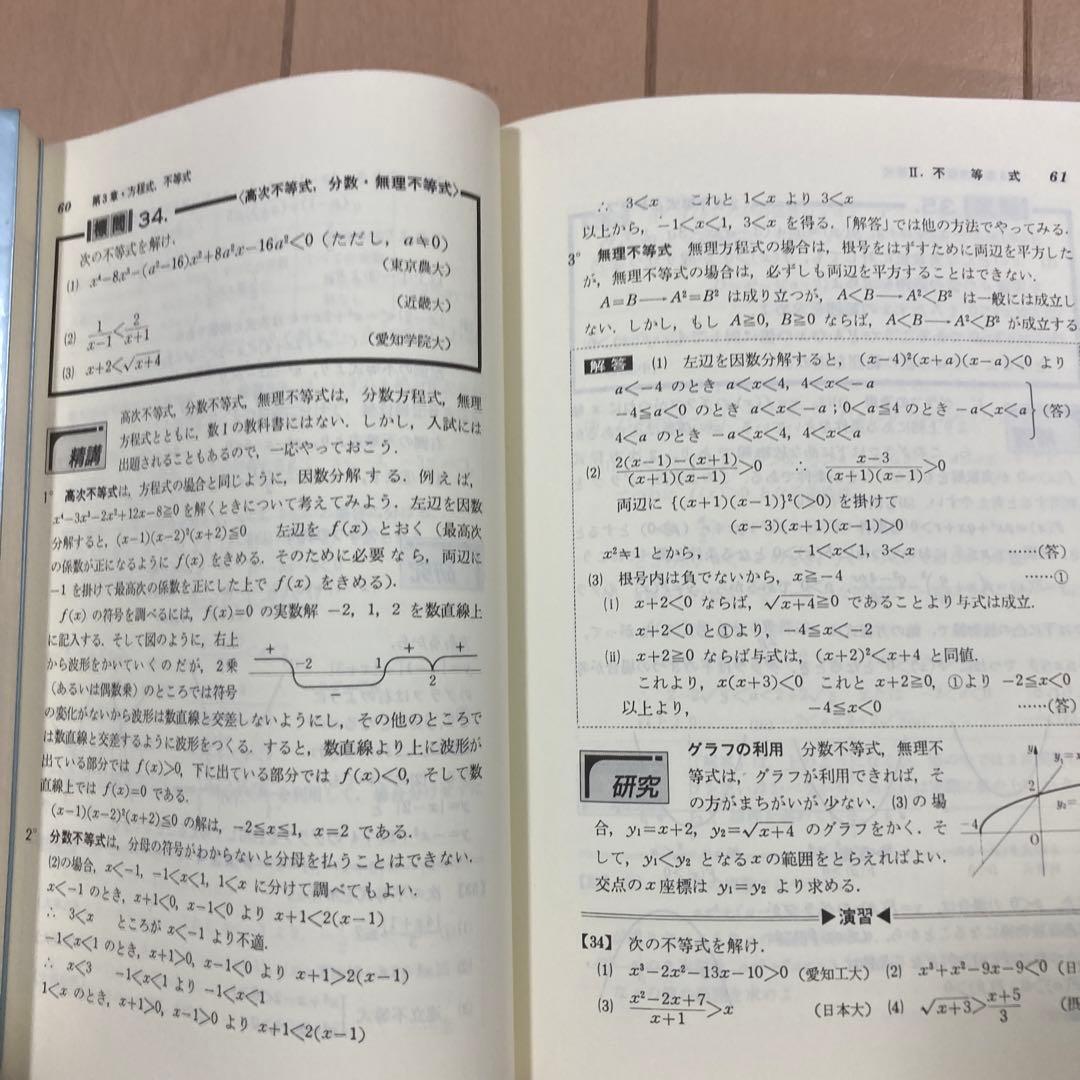 60 第3章・方程式,不等式
標問 34. 〈高次不等式,分数・無理不等式〉
次の不等式を解け.
(1) x⁴−8x³−(a²−16)x²+8a²x−16a²<0(ただし,a≠0)
(東京農大)
(近畿大)
(2) 1/(x−1)<2/(x+1)
(愛知学院大)
(3) x+2<√(x+4)
精講
高次不等式,分数不等式,無理不等式は,分数方程式,無理
方程式とともに,数Iの教科書にはない.しかし,入試には
出題されることもあるので,一応やっておこう.
1° 高次不等式は,方程式の場合と同じように,因数分解する.例えば,
x⁴−3x³−2x²+12x−8≧0 を解くときについて考えてみよう.左辺を因数
分解すると,(x−1)(x−2)²(x+2)≦0 左辺を f(x) とおく(最高次
の係数が正になるように f(x) をきめる.そのために必要なら,両辺に
−1 を掛けて最高次の係数を正にした上で f(x) をきめる).
f(x) の符号を調べるには,f(x)=0 の実数解 −2, 1, 2 を数直線上
に記入する.そして図のように,右上
から波形をかいていくのだが,2乗
(あるいは偶数乗)のところでは符号
+ −2 − 1 + 2 +
の変化がないから波形は数直線と交差しないようにし,その他のところで
は数直線と交差するように波形をつくる.すると,数直線より上に波形が
出ている部分では f(x)>0,下に出ている部分では f(x)<0,そして数
直線上では f(x)=0 である.
(x−1)(x−2)²(x+2)≦0 の解は,−2≦x≦1, x=2 である.
2° 分数不等式は,分母の符号がわからないと分母を払うことはできない.
(2)の場合,x<−1, −1<x<1, 1<x に分けて調べてもよい.
x<−1 のとき,x+1<0, x−1<0 より x+1<2(x−1)
∴ 3<x ところが x<−1 より不適.
−1<x<1 のとき,x+1>0, x−1<0 より x+1>2(x−1)
∴ x<3 −1<x<1 より −1<x<1
1<x のとき,x+1>0, x−1>0 より x+1<2(x−1)
II.不等式 61
∴ 3<x これと 1<x より 3<x
以上から,−1<x<1, 3<x を得る.「解答」では他の方法でやってみる.
3° 無理不等式 無理方程式の場合は,根号をはずすために両辺を平方した
が,無理不等式の場合は,必ずしも両辺を平方することはできない.
A=B→A²=B² は成り立つが,A<B→A²<B² は一般には成立し
ない.しかし,もし A≧0, B≧0 ならば,A<B→A²<B² が成立する
解答 (1) 左辺を因数分解すると,(x−4)²(x+a)(x−a)<0 より
a<−4 のとき a<x<4, 4<x<−a
−4≦a<0 のとき a<x<−a;0<a≦4 のとき −a<x<a (答)
4<a のとき −a<x<4, 4<x<a
(2) (2(x−1)−(x+1))/((x+1)(x−1))>0 ∴ (x−3)/((x+1)(x−1))>0
両辺に {(x+1)(x−1)}²(>0) を掛けて
(x−3)(x+1)(x−1)>0
x²≠1 とから, −1<x<1, 3<x ……(答)
(3) 根号内は負でないから,x≧−4 ……①
(i) x+2<0 ならば,√(x+4)≧0 であることより与式は成立.
x+2<0 と①より,−4≦x<−2
(ii) x+2≧0 ならば与式は,(x+2)²<x+4 と同値.
これより,x(x+3)<0 これと x+2≧0, ①より −2≦x<0
以上より, −4≦x<0 ……(答)
研究
グラフの利用 分数不等式,無理不
等式は,グラフが利用できれば,そ
の方がまちがいが少ない.(3)の場
合,y₁=x+2, y₂=√(x+4) のグラフをかく.そ
して,y₁<y₂ となる x の範囲をとらえればよい.
交点の x 座標は y₁=y₂ より求める.
y
y₁=
2
y₂=
−4 0
▶演習◀
【34】 次の不等式を解け.
(1) x³−2x²−13x−10>0(愛知工大) (2) x³+x²−9x−9<0(日
(3) (x²−2x+7)/(x+1)>x (日本大) (4) √(x+3)>(x+5)/3